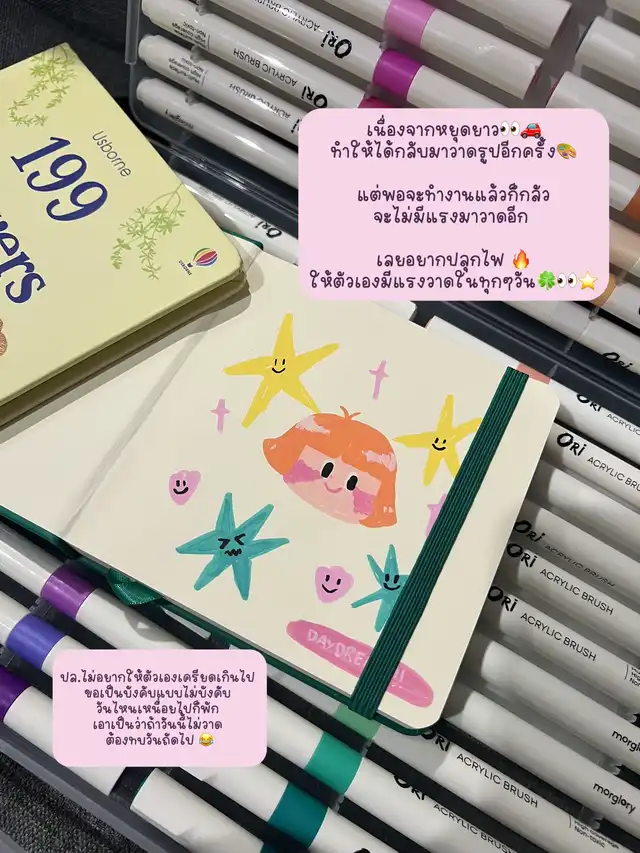 ORi ACRYLIC BRUSH
ORi ACRYLIC BRUSH
เนื่องจากหยุดยาว👀🚗
ทำให้ได้กลับมาวาดรูปอีกครั้ง🎨
แต่พอจะทำงานแล้วก็กลัว
จะไม่มีแรงมาวาดอีก
เลยอยากปลุกไฟ 🔥
ให้ตัวเองมีแรงวาดในทุกๆวัน🍀👀⭐
Usborne
199
ORi ACRYLIC BRUSH
ORi ACRYLIC BRUSH
ORi ACRYLIC BRUSH
DAYDRE
ปล.ไม่อยากให้ตัวเองเครียดเกินไป
ขอเป็นบังคับแบบไม่บังคับ
วันไหนเหนื่อยไปก็พัก
เอาเป็นว่าถ้าวันนี้ไม่วาด
ต้องทบวันถัดไป 😂
morglory
ORi ACRYLIC BRUSH
morglory
ACRYLIC BRUSH